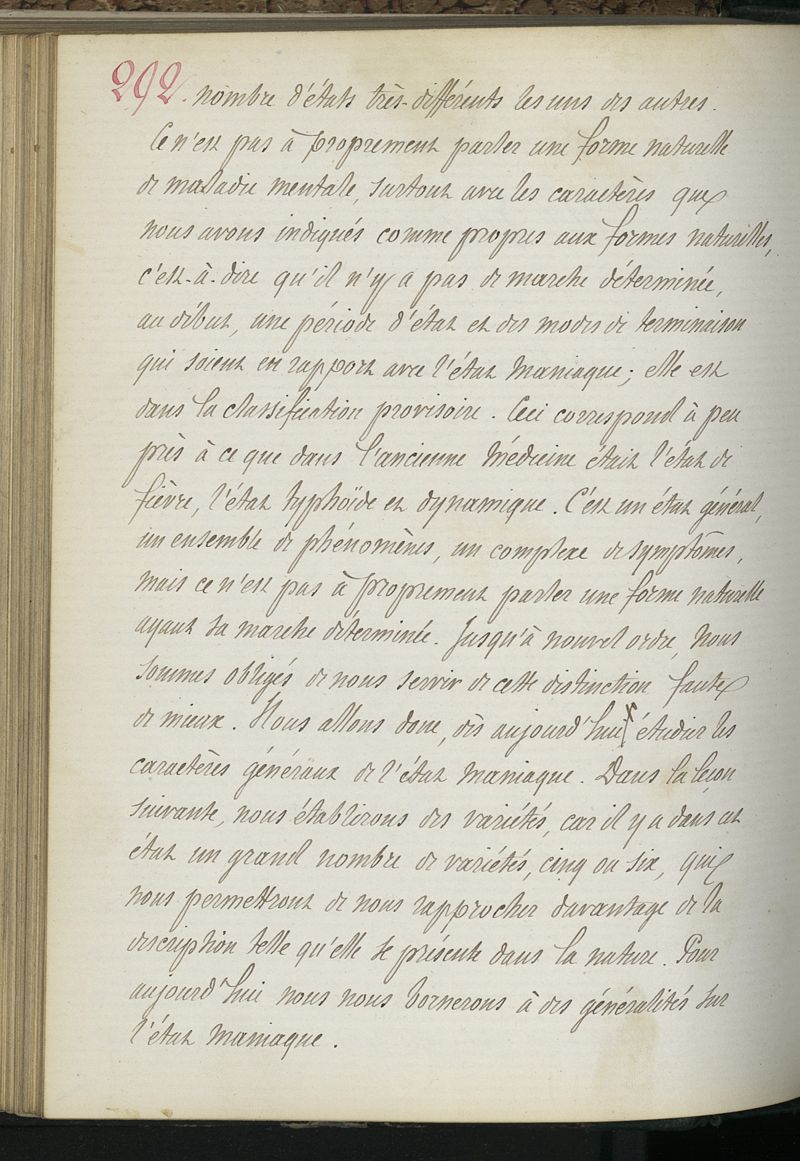 292. nombre d'états très-différents les uns des autres.
Ce n'est pas à proprement parler une forme naturelle
de maladie mentale, surtout avec les caractères que
nous avons indiqués comme propres aux formes naturelles,
c'est-à-dire qu'il n'y a pas de marche déterminée,
au début, une période d'état et des modes de terminaison
qui soient en rapport avec l'état maniaque; elle est
dans la classification provisoire. Ceci correspond à peu
près à ce que dans l'ancienne Médecine était l'état de
fièvre, l'état typhoïde et dynamique. C'est un état général,
un ensemble de phénomènes, un complexe de symptômes,
mais ce n'est pas à proprement parler une forme naturelle
ayant sa marche déterminée. Jusqu'à nouvel ordre, nous
sommes obligés de nous servir de cette distinction faute
de mieux. Nous allons donc, dès aujourd'hui étudier les
caractères généraux de l'état maniaque. Dans la leçon
suivante, nous établirons des variétés, car il y a dans cet
état un grand nombre de variétés, cinq ou six, qui
nous permettront de nous rapprocher davantage de la
description telle qu'elle se présente dans la nature. Pour
aujourd'hui nous nous bornerons à des généralités sur
l'état maniaque.